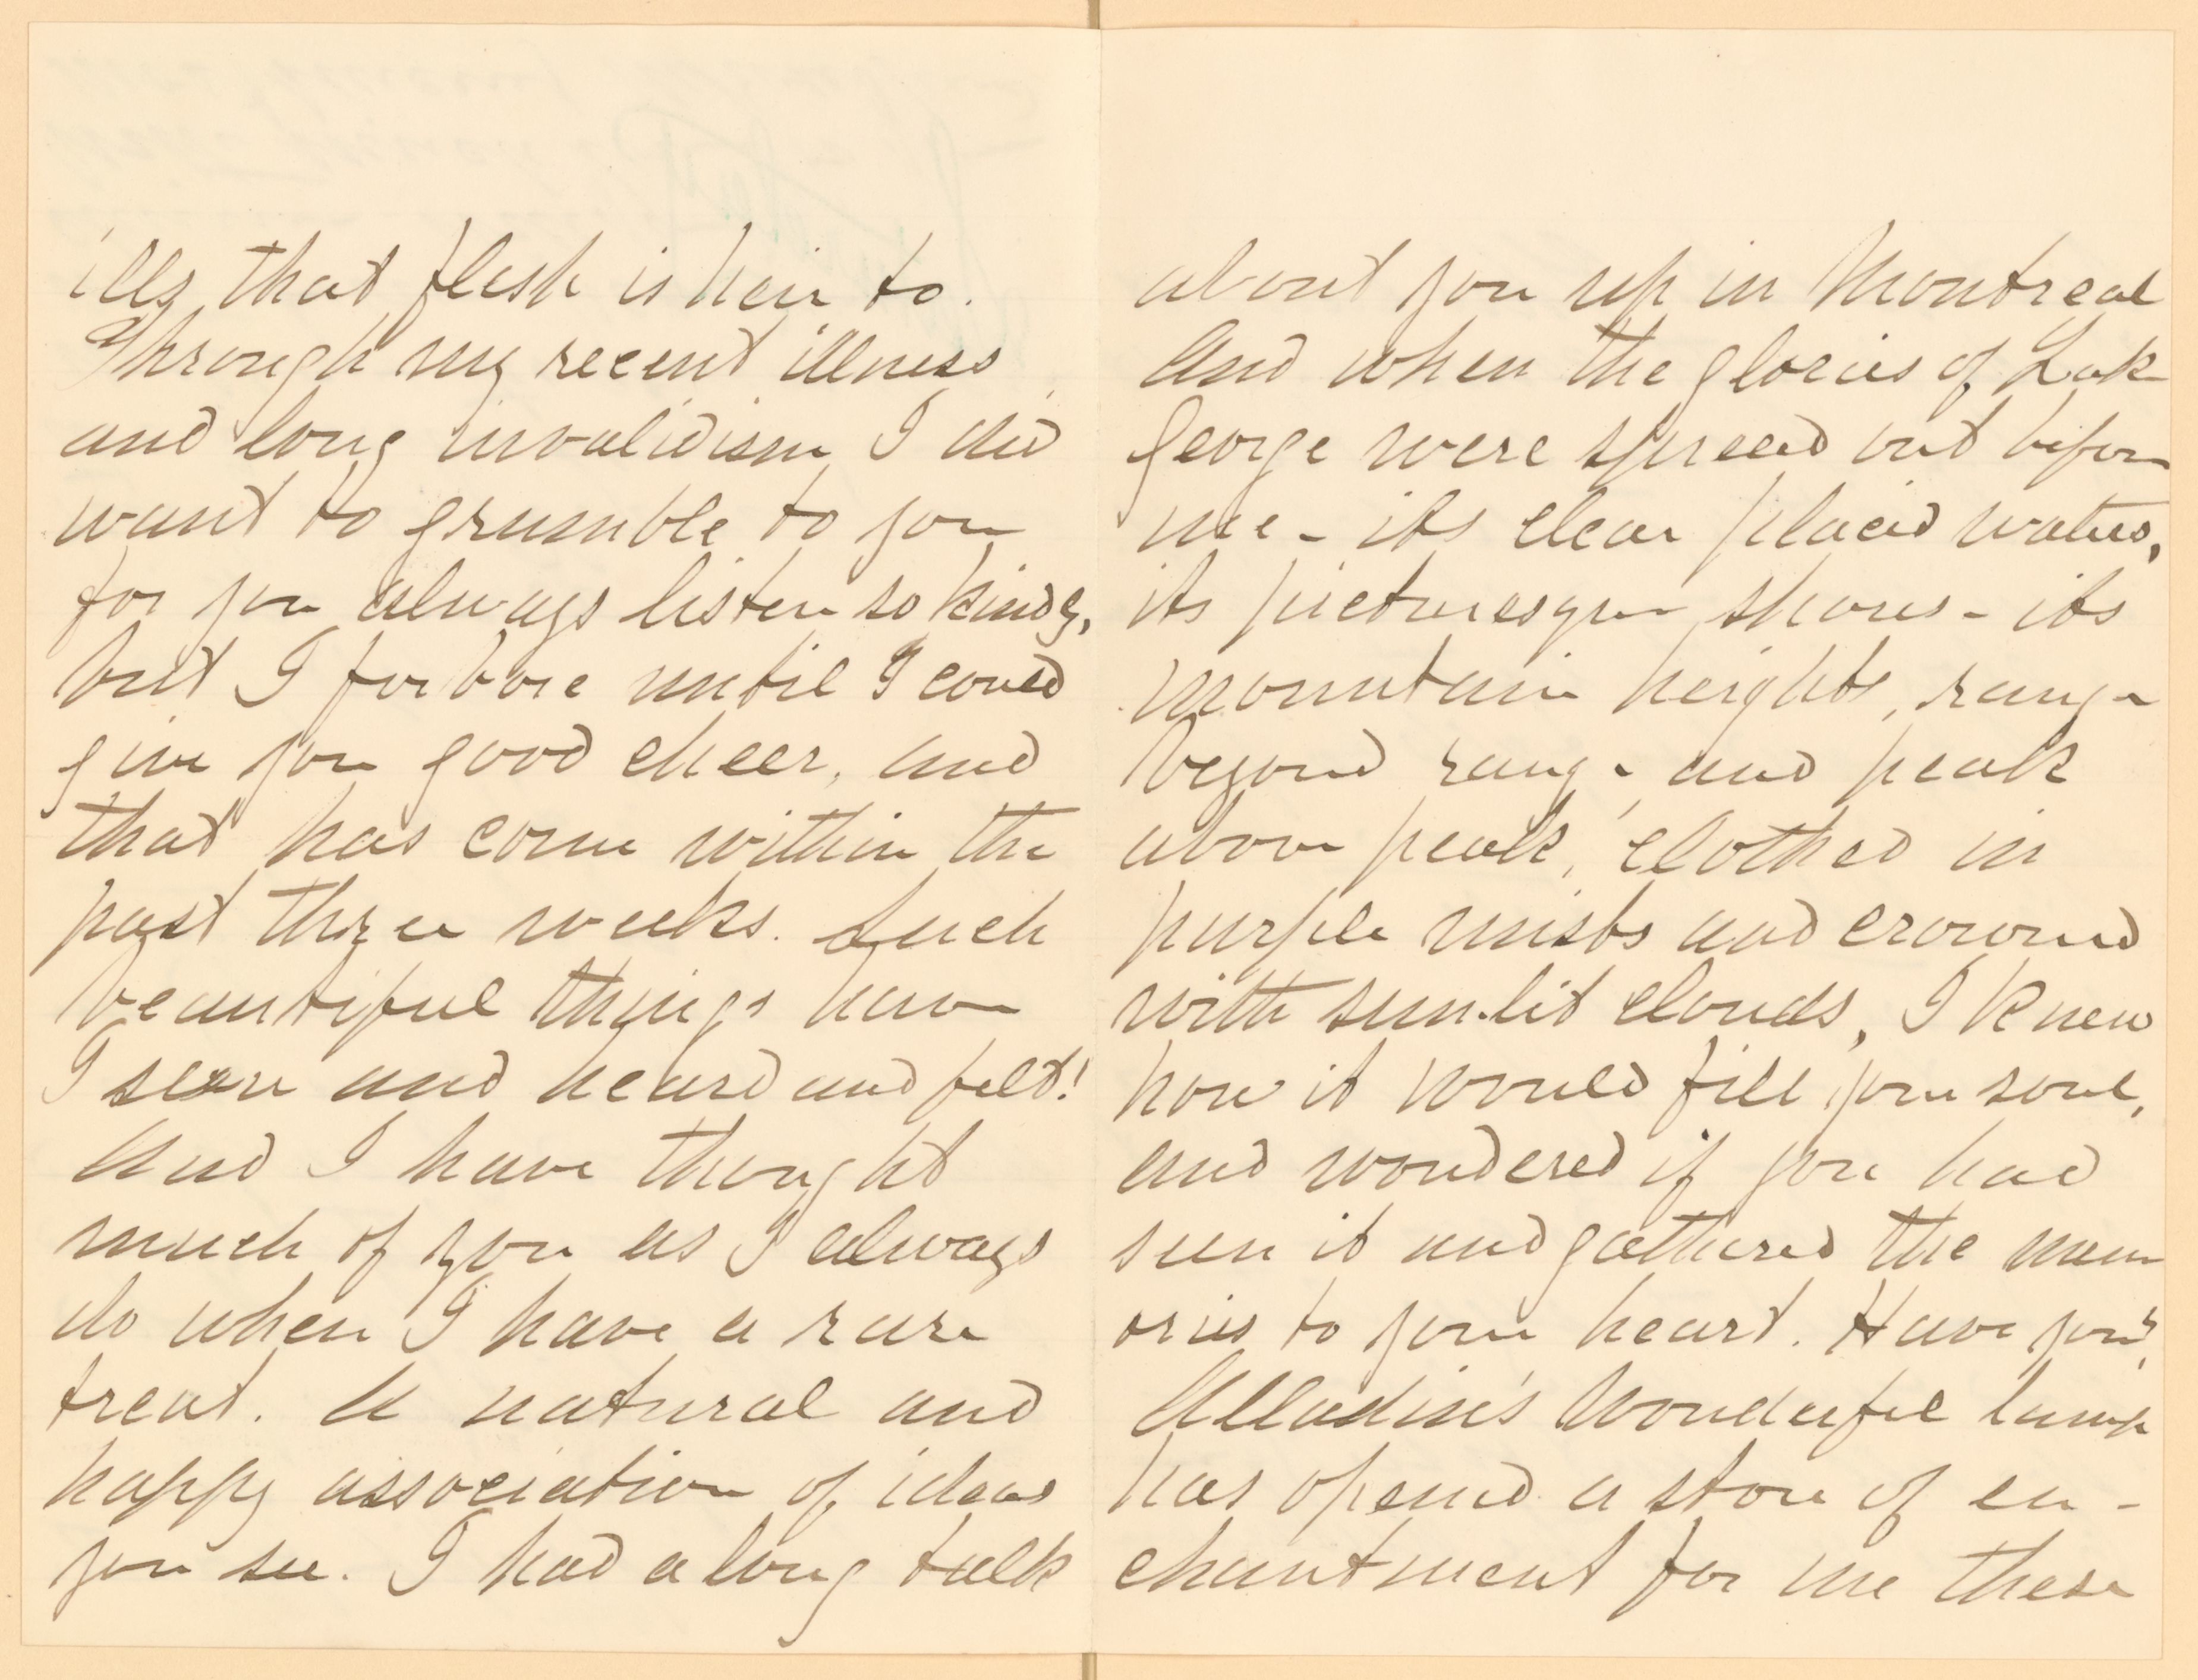 ills that flesh is heir to.
Through my recent illness
and long invalidism I did
want to grumble to you
for you always listen so kindly,
but I forbore until I could
give you good cheer, and
that has come within the
past three weeks. Such
beautiful things have
I seen and heard and felt!
And I have thought
much of you as I always
do when I have a rare
treat. A natural and
happy association of ideas
you see. I had a long talk
about you up in Montreal
And when the glories of Lake
George were spread out before
me - its clear placid waters,
its picturesque shores - its
mountain heights, range
beyond range and peak
above peak, clothed in
purple mists and crowned
with sun-lit clouds, I knew
how it would fill your soul,
and wondered if you had
seen it and gathered the mem
ories to your heart. Have you?
Alladin's wonderful lamp
has opened a store of en-
chantment for me these